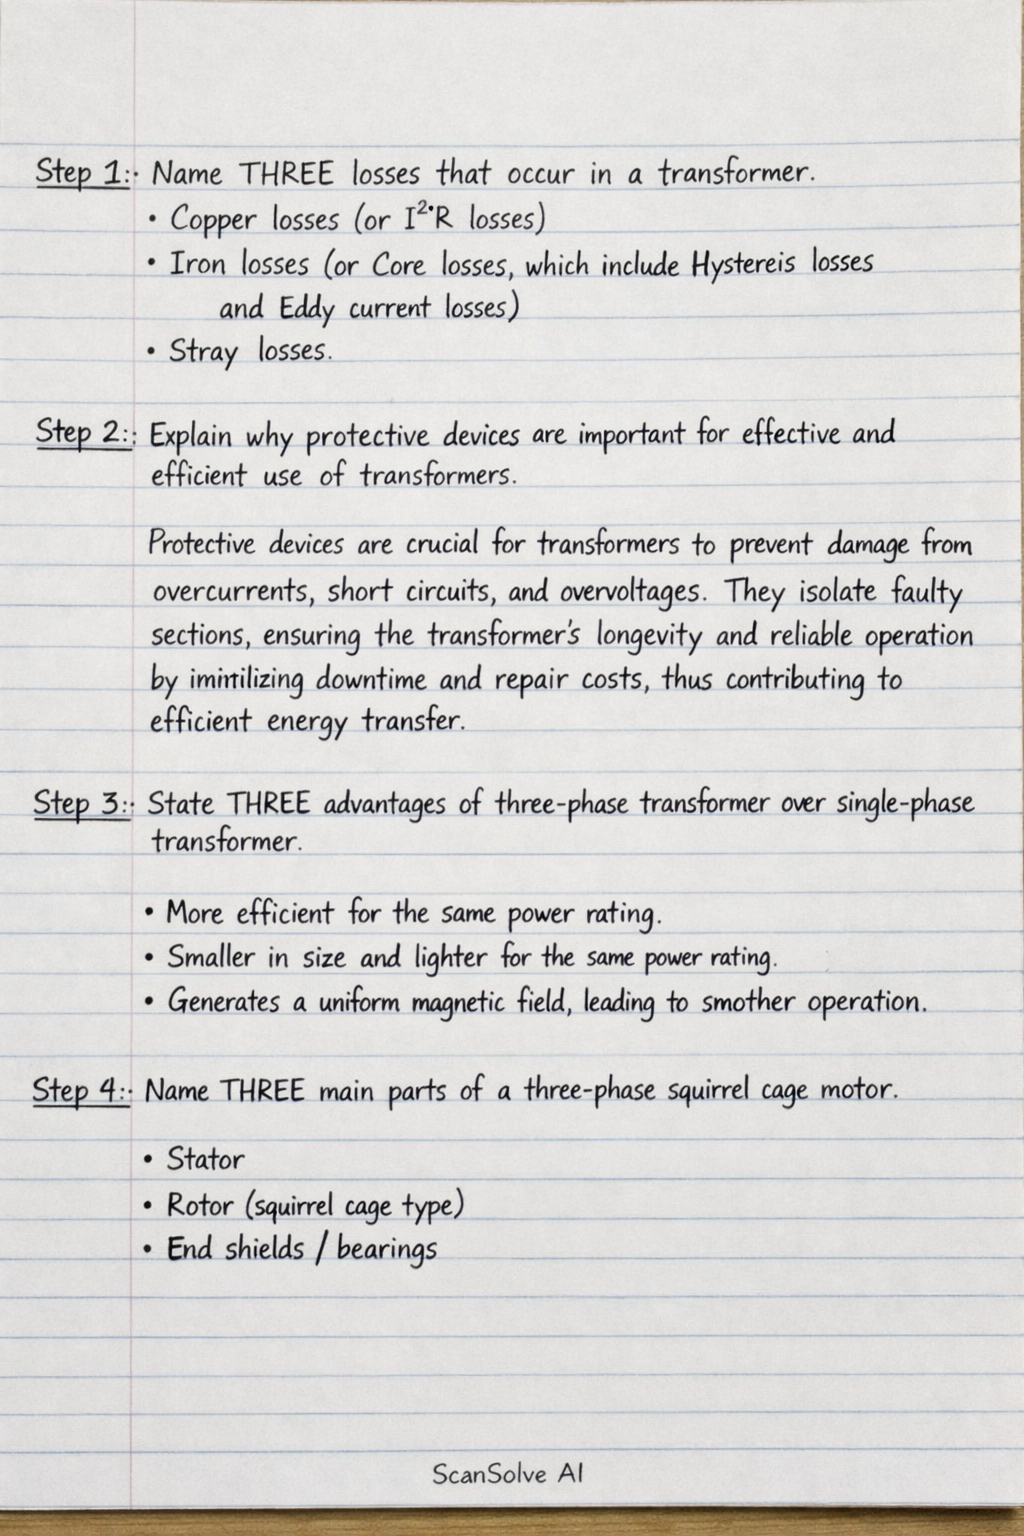 Step 1:: Name THREE losses that occur in a transformer.
• Copper losses (or I²·R losses)
• Iron losses (or Core losses, which include Hystereis losses
and Eddy current losses)
• Stray losses.
Step 2:: Explain why protective devices are important for effective and
efficient use of transformers.
Protective devices are crucial for transformers to prevent damage from
overcurrents, short circuits, and overvoltages. They isolate faulty
sections, ensuring the transformer's longevity and reliable operation
by downtime and repair costs, thus contributing to
efficient energy transfer.
Step 3:: State THREE advantages of three-phase transformer over single-phase
transformer.
• More efficient for the same power rating.
• Smaller in size and lighter for the same power rating.
• Generates a uniform magnetic field, leading to smother operation.
Step 4:: Name THREE main parts of a three-phase squirrel cage motor.
• Stator
• Rotor (squirrel cage type)
• End shields / bearings
ScanSolve AI